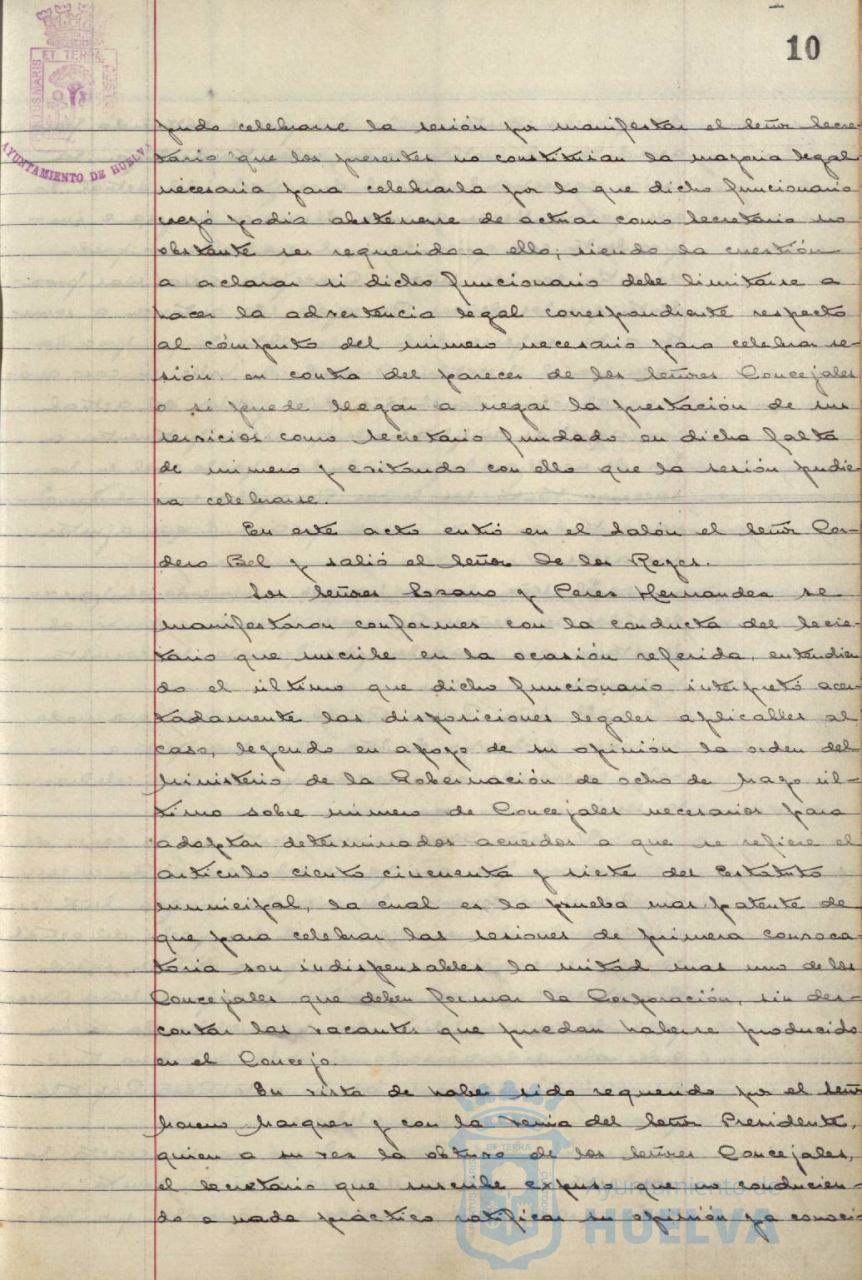 10
ET TERRE
AYUNTAMIENTO DE HUELVA
pudo celebrarse la sesión por manifestar el señor Secre-
tario que los presentes no constituian la mayoria legal
necesaria para celebrarla por lo que dicho funcionario
creyó podia abstenerse de actuar como Secretario no
obstante ser requerido a ello; siendo la cuestión
a aclarar si dicho funcionario debe limitarse a
hacer la advertencia legal correspondiente respecto
al cómputo del número necesario para celebrar se-
sión en contra del parecer de los señores Concejales
o si puede llegar a negar la prestación de sus
servicios como Secretario fundado en dicha falta
de número y evitando con ello que la sesión pudie-
ra celebrarse.
En este acto entró en el Salón el señor Cor-
dero Bel y salió el señor De los Reyes.
Los señores Lozano y Perez Hernandez se
manifestaron conformes con la conducta del Secre-
tario que suscribe en la ocasión referida, entendien-
do el último que dicho funcionario interpretó acer-
tadamente las disposiciones legales aplicables al
caso, leyendo en apoyo de su opinión la orden del
Ministerio de la Gobernación de ocho de Mayo úl-
timo sobre número de Concejales necesarios para
adoptar determinados acuerdos a que se refiere el
artículo ciento cincuenta y siete del Estatuto
municipal, la cual es la prueba mas patente de
que para celebrar las sesiones de primera convoca-
toria son indispensables la mitad mas uno de los
Concejales que deben formar la Corporación, sin des-
contar las vacantes que puedan haberse producido
en el Concejo.
En vista de haber sido requerido por el señor
Moreno Marquez y con la venia del señor Presidente,
quien a su vez la obtuvo de los señores Concejales,
el Secretario que suscribe expuso que no conducien-
do a nada práctico ratificar su opinión ya conoci-
Ayuntamiento de
HUELVA